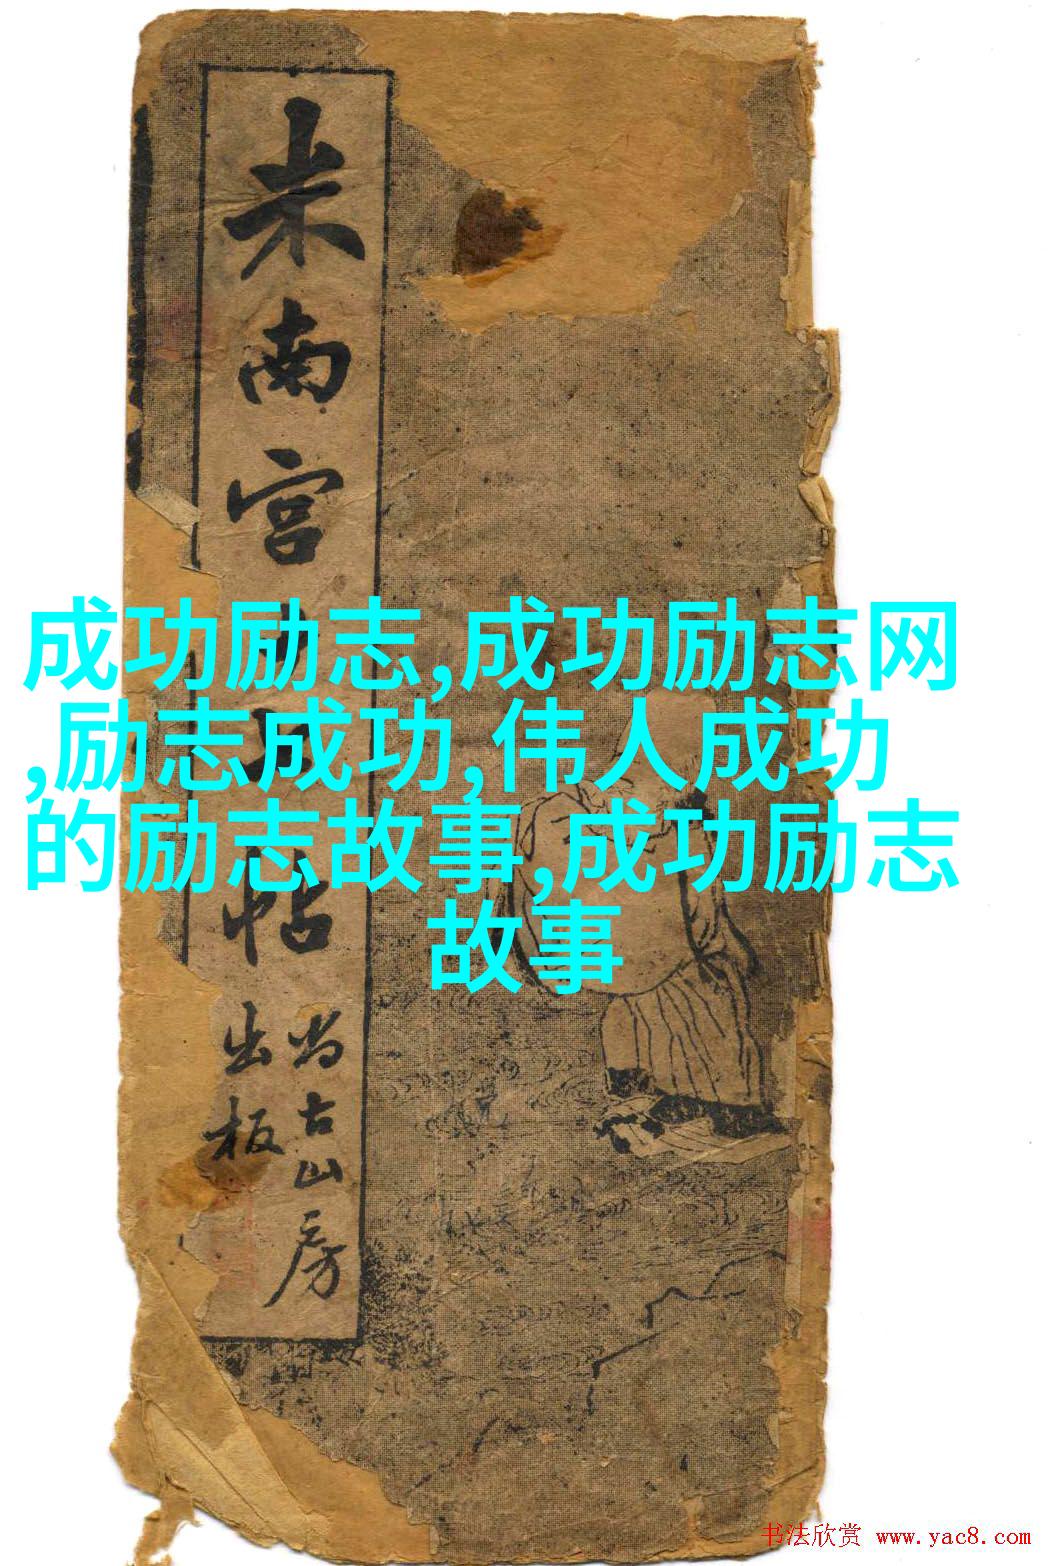 米南宫
帖
尚古山房
出板
成功励志,成功励志网
,励志成功,伟人成功
的励志故事,成功励志
故事
书法欣赏 www.yac8.com